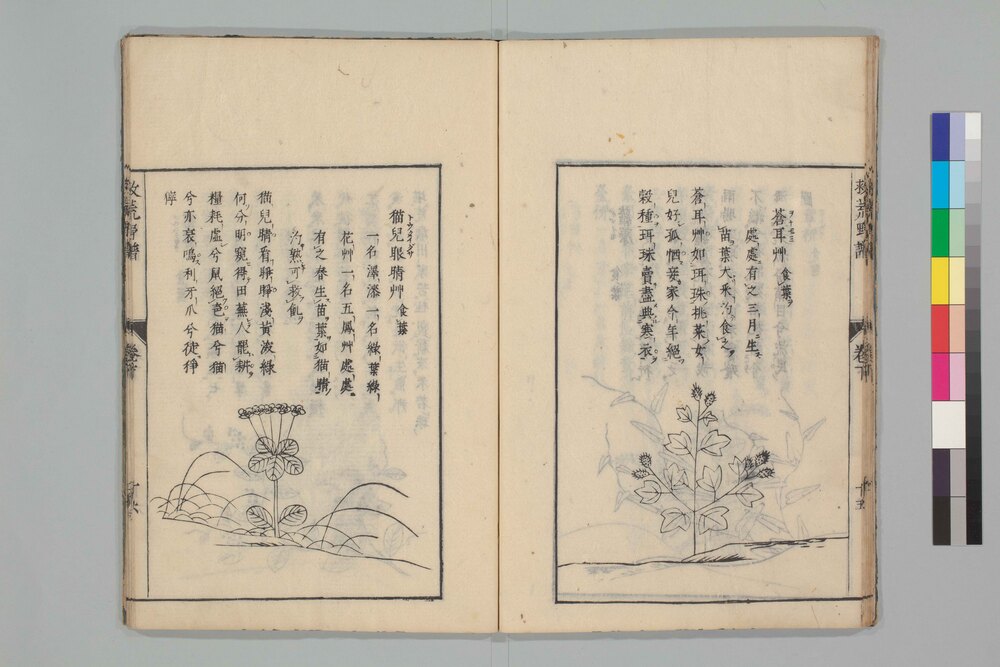 救荒野譜
卷下
十五
蒼耳艸 食葉
處處有之三月生
苗葉大釆灼食之
蒼耳艸如珥珠挑菜女
兒好孤恓妾家今年絕
穀種珥珠賣盡典寒衣
猫兒眼睛艸 食葉
一名澤漆一名綠葉綠
花艸一名五鳳艸處處
有之春生苗葉如猫睛
灼熟可救飢
猫兒睛看睜睜淺黃波綠
何分明窺得田蕪人罷耕
糧耗虛兮鼠絕邑猫兮猫
兮亦哀鳴利牙爪兮徒猙
獰
救荒野譜
卷下